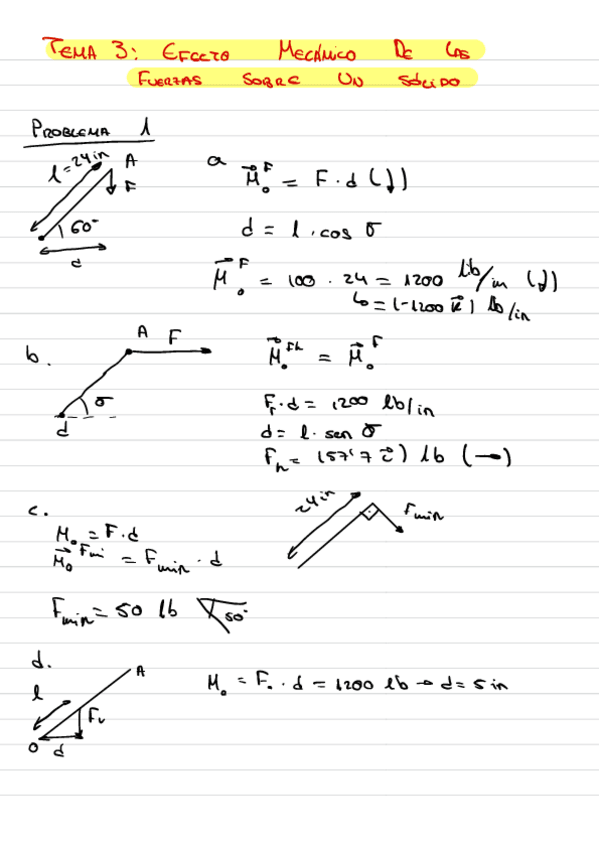 TEMA 3: EFECTO MECÁNICO DE LAS
FUERZAS SOBRE UN SÓLIDO
PROBLEMA 1
l=24in
A
F
60°
d
a
M⃗₀ᶠ = F·d (↓)
d = l·cos σ
M⃗₀ᶠ = 100·24 = 1200 lb/in (↓)
↳ = (-1200 k⃗) lb/in
b.
A F
σ
d
M⃗₀ᶠʰ = M⃗₀ᶠ
F·d = 1200 lb/in
d = l·sen σ
Fₕ = (57'7 i⃗) lb (→)
c.
24in
Fmin
M₀ = F·d
M⃗₀ = Fmin·d
Fmin = 50 lb
d.
A
l
Fᵥ
O d
M₀ = F·d = 1200 lb → d = 5in